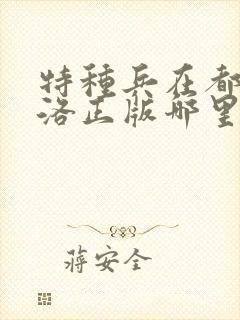 特種兵在都
洛正版哪里
蔣安全